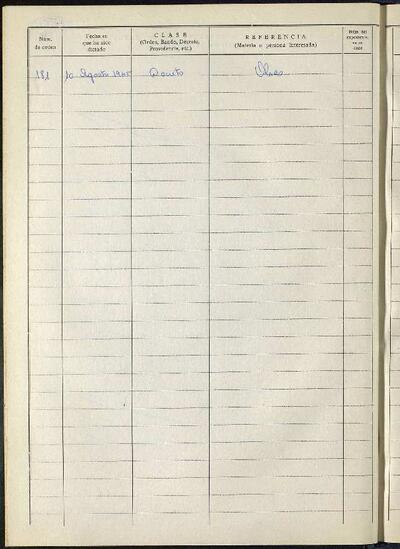 Núm. de orden
Fecha en que ha sido dictado
CLASE
(Orden, Bando, Decreto, Providencia, etc.)
REFERENCIA
(Materia o persona interesada)
181 10 Agosto 1965 Decreto Obras